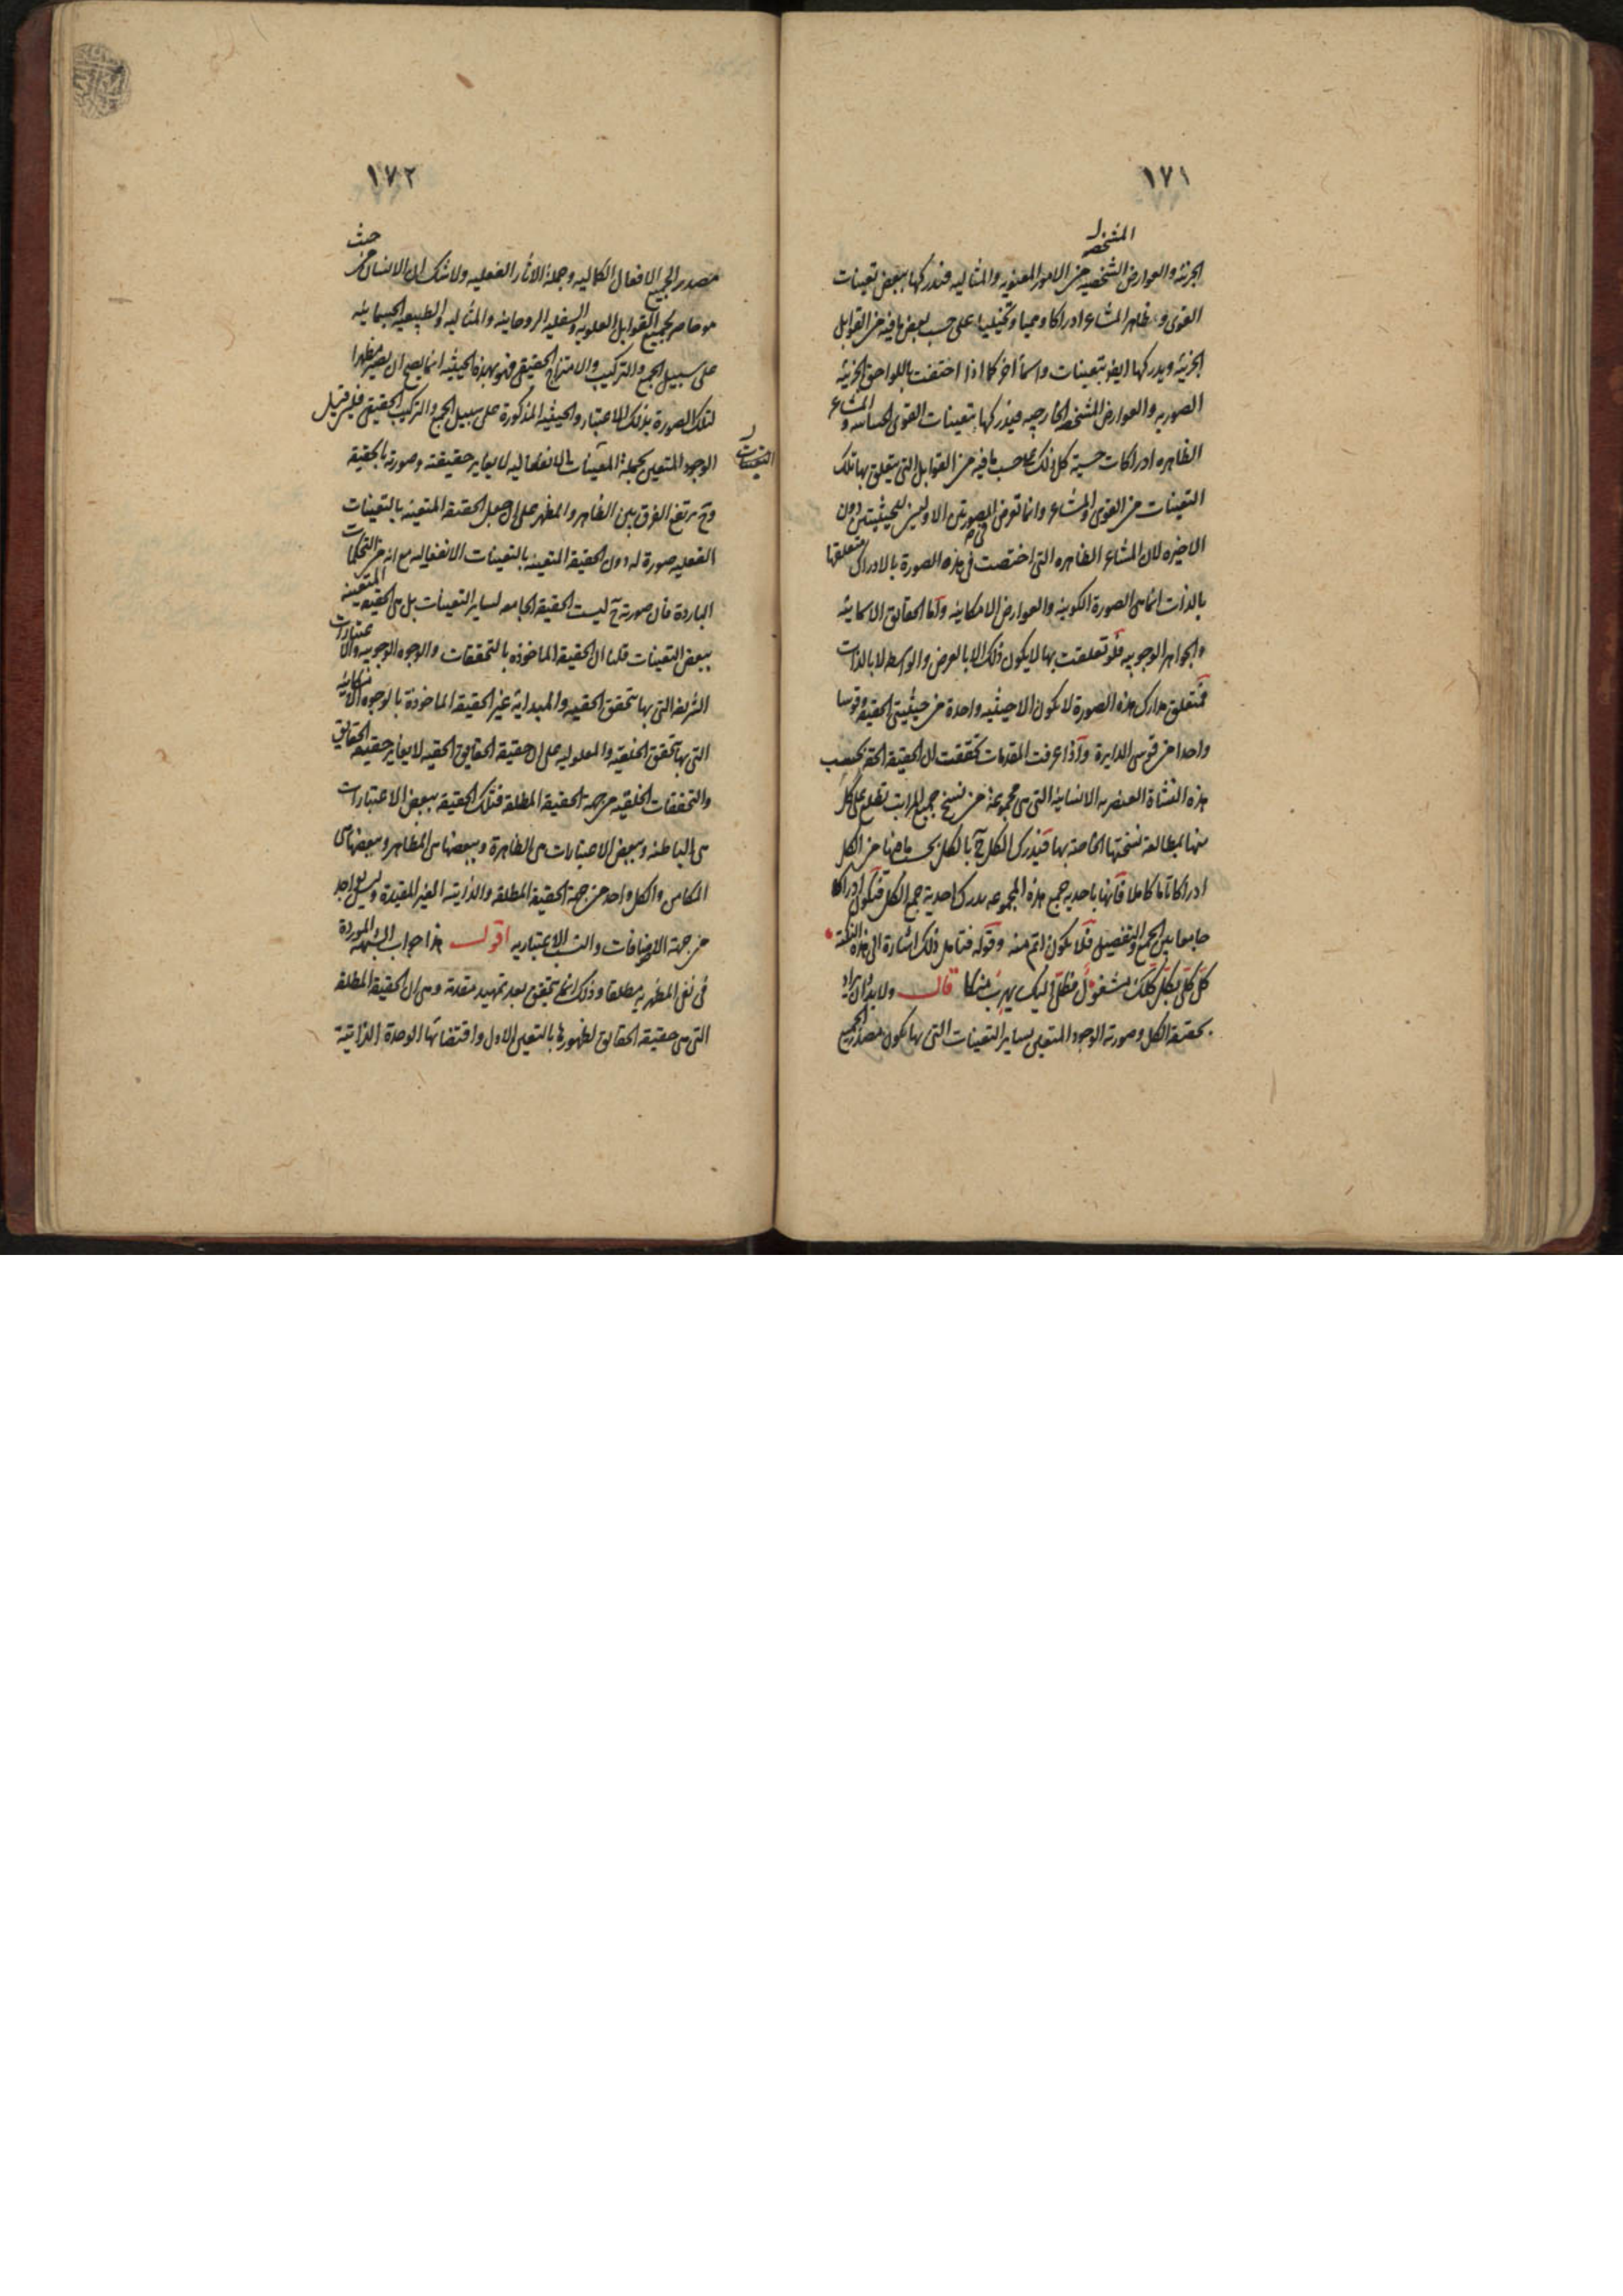 ١٧١
المشخصة
الجزئية والعوارض الشخصية من الامور المعنوية والمثالية فتدركها ببعض تعينات
القوى وظاهر المشاعر ادراكا وهميا وتخيليا على حسب بعض ما فيه من القوابل
الجزئية ويدركها ايضا بتعينات واسماء اخر كما اذا اختفت باللواحق الجزئية
الصورية والعوارض المشخصة الخارجية فيدركها بتعينات القوى الحساسة والمشاعر
الظاهرة ادراكات حسية كل ذلك على حسب ما فيه من القوابل التي يتعلق بها تلك
التعينات من القوى والمشاعر وانما تعرض للصورتين الاوليين للحيثيتين دون
الاخيرة لان المشاعر الظاهرة التي اختصت في هذه الصورة بالادراك متعلقها
بالذات انما هي الصورة الكونية والعوارض الامكانية واما الحقائق الاسمائية
والجواهر الوجوبية فلو تعلقت بها لا يكون ذلك الا بالعرض والواسطة لا بالذات
فمتعلق مدارك هذه الصورة لا يكون الا حيثية واحدة من حيثيتي الحقيقة وقوسا
واحدا من قوسي الدايرة واذا عرفت المقدمات تحققت ان الحقيقة الحقة بحسب
هذه النشأة العنصرية الانسانية التي هي مجموعة من نسخ جميع المراتب تطلع على كل
منها بمطالعة نسختها الخاصة بها فيدرك الكل ح بالكل بحسب ما فيها من الكل
ادراكا تاما كاملا فانها باحدية جمع هذه المجموعة يدرك احدية جمع الكل فتكون ادراكا
جامعا بين الجمع والتفصيل فلا يكون اتم منه وقوله فتامل ذلك اشارة الى هذه النكتة
كل كلي بكل كلك مشغول قال ولا بد ان يراد
بحقيقة الكل وصورته الوجود المتعين بساير التعينات التي بها يكون مصدر الجميع
١٧٢
مصدر الجميع الافعال الكمالية وجملة الاثار الفعلية ولا شك ان الانسان من حيث
هو حاصر لجميع القوابل العلوية والسفلية الروحانية والمثالية والطبيعية الجسمانية
على سبيل الجمع والتركيب والامتزاج الحقيقي فهو بهذه الحيثية انما يصح ان يصير مظهرا
لتلك الصورة بذلك الاعتبار والحيثية المذكورة على سبيل الجمع والتركيب الحقيقي فلئن قيل
الوجود المتعين بجملة التعينات الانفعالية لا يغاير حقيقته وصورته بالحقيقة
التعينات
وح يرتفع الفرق بين الظاهر والمظهر على ان جعل الحقيقة المتعينة بالتعينات
الفعلية صورة له دون الحقيقة المتعينة بالتعينات الانفعالية مع انه من التحكمات
الباردة فان صورته ح ليست الحقيقة الجامعة لساير التعينات بل هي الحقيقة المتعينة
ببعض التعينات قلنا ان الحقيقة الماخوذة بالتحققات والوجوه الوجوبية والاعتبارات
الشريفة التي بها تتحقق الحقية والمبدائية غير الحقيقة الماخوذة بالوجوه الامكانية
التي بها تتحقق الخلقية والمعلولية على ان حقيقة الحقايق الحقية لا يغاير حقيقة الحقايق
والتحققات الخلقية من جهة الحقيقة المطلقة فتلك الحقيقة ببعض الاعتبارات
هي الباطنة وببعض الاعتبارات هي الظاهرة وببعضها هي المظاهر وببعضها هي
المكامن والكل واحد من جهة الحقيقة المطلقة والذاتية الغير المقيدة وليس بواحد
من جهة الاضافات والنسب الاعتبارية اقول هذا جواب الشبهة الموردة
في نفي المظهرية مطلقا وذلك انما يتحقق بعد تمهيد مقدمة وهي ان الحقيقة المطلقة
التي هي حقيقة الحقايق لظهورها بالتعين الاول واقتضائها الوحدة الذاتية